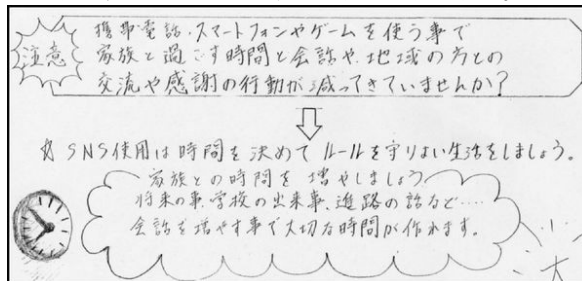 注意
携帯電話・スマートフォンやゲームを使う事で
家族と過ごす時間と会話や、地域の方との
交流や感謝の行動が減ってきていませんか?
☆SNS使用は時間を決めてルールを守りよい生活をしましょう。
家族との時間を増やしましょう
将来の事、学校の出来事、進路の話など……
会話を増やす事で大切な時間が作れます。
大